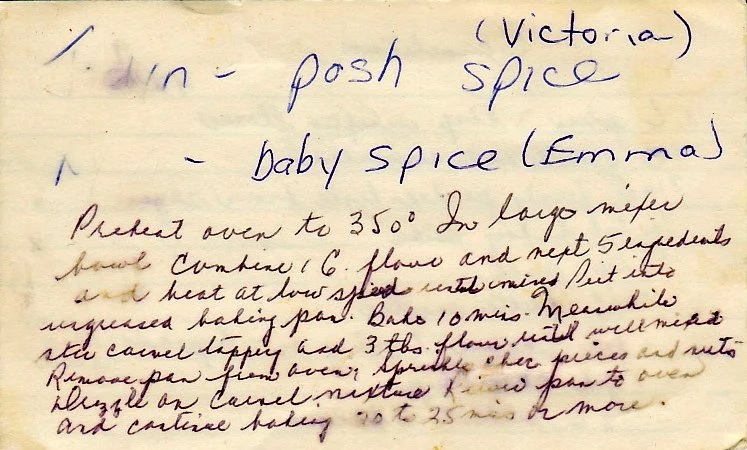 (Victoria)
- posh spice
- baby spice (Emma)
Preheat oven to 350° In large mixer
bowl combine 1 C. flour and next 5 ingredients
and beat at low speed until mixed Put into
ungreased baking pan. Bake 10 mins. Meanwhile
stir carmel topping and 3 tbs. flour until well mixed
Remove pan from oven, sprinkle choc pieces and nuts
Drizzle on carmel mixture pan to oven
and continue baking 20 to 25 mins or more.